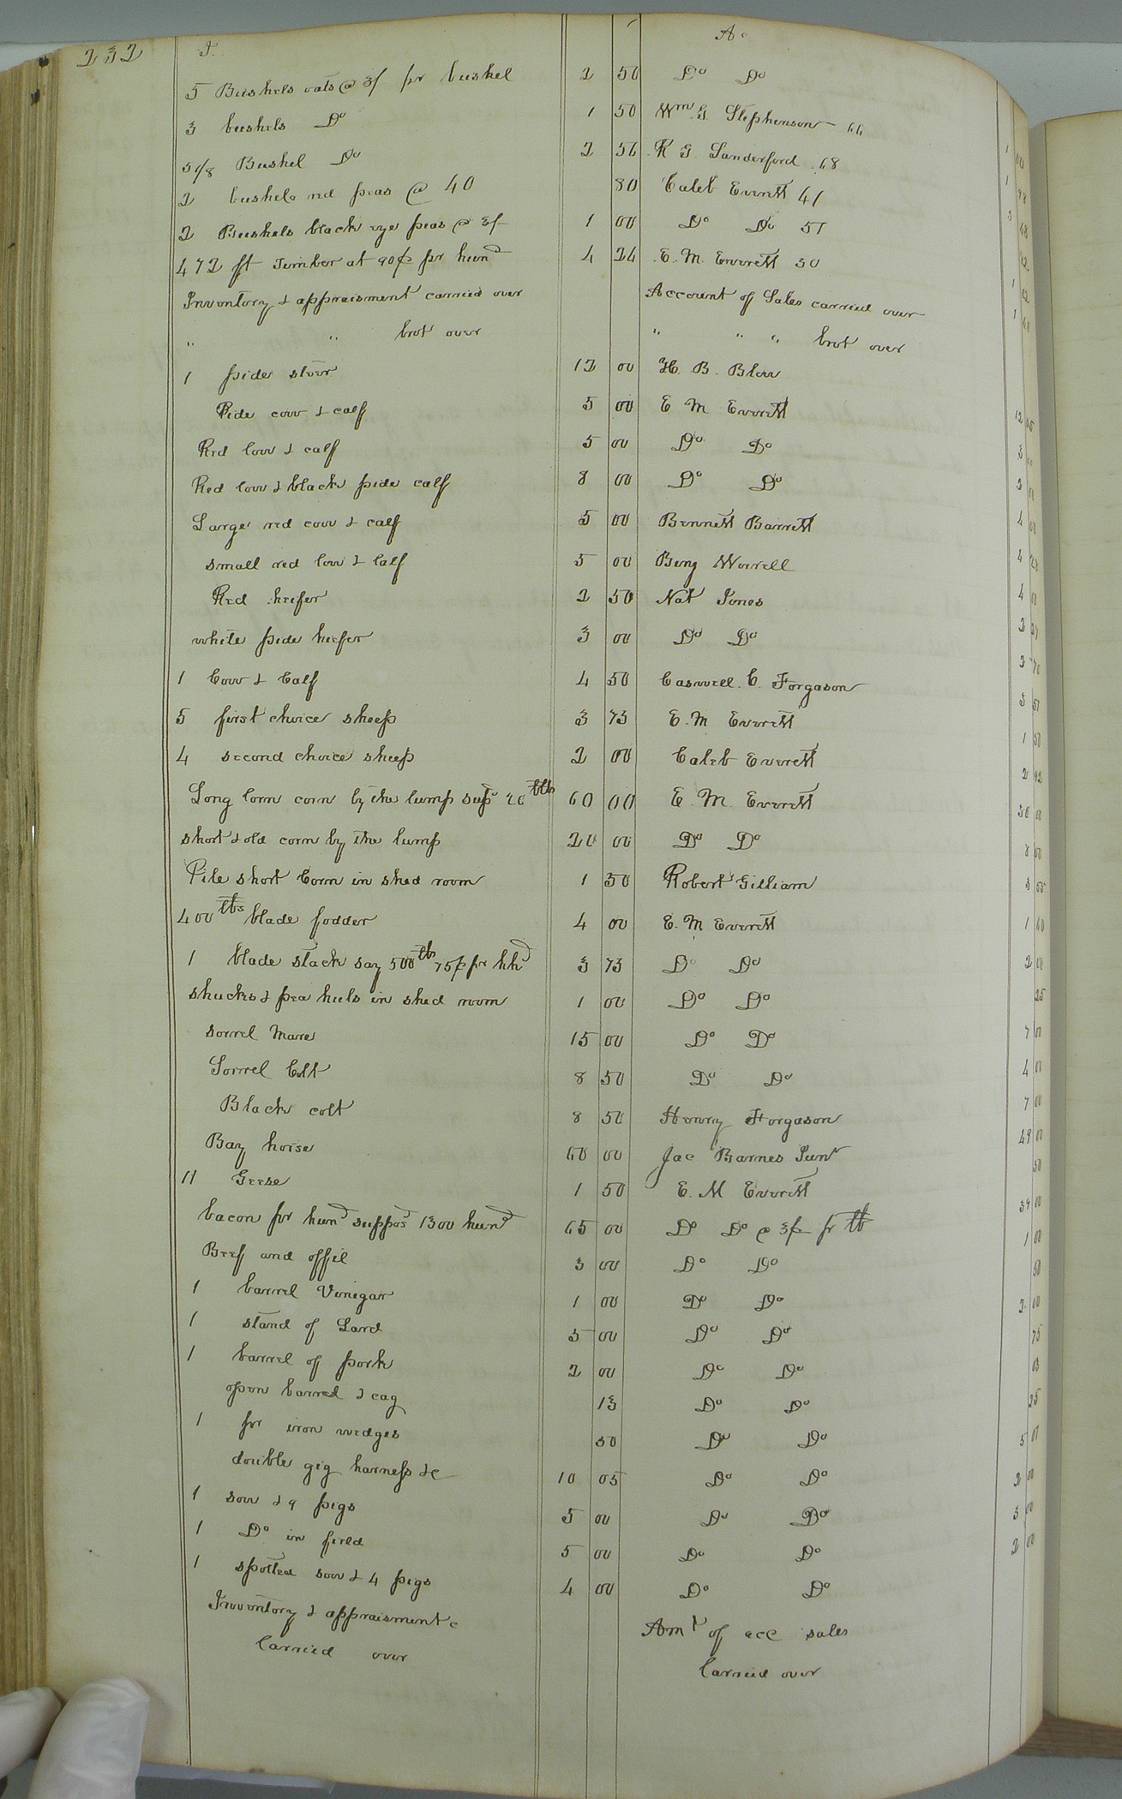 232 J. Ac
5 Bushels oats @ 3/ pr bushel 2 50 Do Do
3 bushels Do 1 50 Wm. G. Stephenson 66
5 1/8 Bushel Do 2 56 K G. Sanderford 68
2 bushels red peas @ 40 80 Caleb Everett 41
2 Bushels black eye peas @ 3/ 1 00 Do Do 51
472 ft Timber at 90¢ pr hund 4 24 E. M. Everett 50
Inventory & appraisment carried over Account of Sales carried over
" " brot over " " " brot over
1 pide steer 12 00 H. B. Blow
Pide cow & calf 5 00 E M Everett
Red Cow & calf 5 00 Do Do
Red Cow & black pide calf 8 00 Do Do
Large red cow & calf 5 00 Bennett Barrett
small red Cow & Calf 5 00 Benj Worrell
Red heifer 2 50 Nat Jones
white pide heifer 3 00 Do Do
1 Cow & Calf 4 50 Caswell. C. Forgason
5 first choice sheep 3 75 E. M Everett
4 second choice sheep 2 00 Caleb Everett
Long Corn corn by the lump sups 20 bbls 60 00 E. M. Everett
short & old corn by the lump 20 00 Do Do
Pile short Corn in shed room 1 50 Robert Gilliam
400 lbs blade fodder 4 00 E. M Everett
1 blade stack say 500 lbs 75¢ pr hhd 3 75 Do Do
shucks & pea huls in shed room 1 00 Do Do
sorrel Mare 15 00 Do Do
Sorrel Colt 8 50 Do Do
Black colt 8 50 Henry Forgason
Bay horse 60 00 Jac Barnes Junr
11 Geese 1 50 E. M Everett
bacon pr hund suppos 1300 hund 65 00 Do Do @ 3¢ pr lb
Beef and offil 3 00 Do Do
1 barrel Vinigar 1 00 Do Do
1 stand of Lard 5 00 Do Do
1 barrel of pork 2 00 Do Do
open barrel & cag 13 Do Do
1 pr iron wedges 50 Do Do
double gig harness &c 10 05 Do Do
1 sow & 9 pigs 5 00 Do Do
1 Do in field 5 00 Do Do
1 spotted sow & 4 pigs 4 00 Do Do
Inventory & appraisment Amt of acc sales
Carried over Carried over